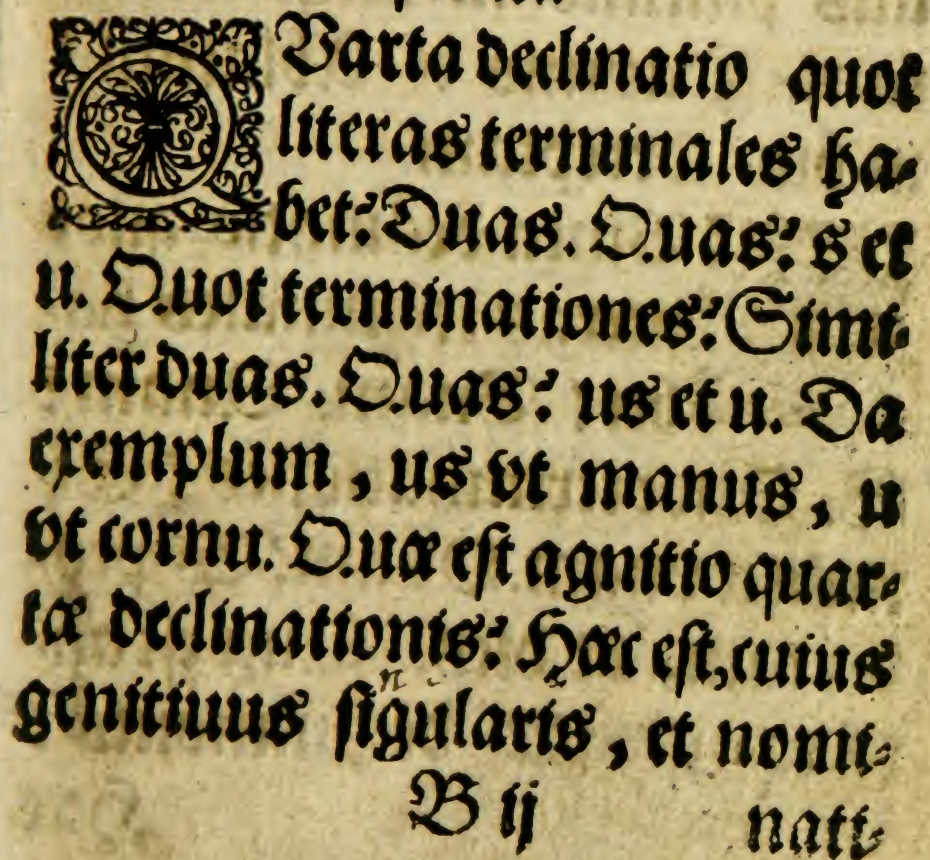 QVarta declinatio quot
literas terminales ha-
bet? Duas. Quas? s et
u. Quot terminationes? Simi-
liter duas. Quas? us et u. Da
exemplum, us vt manus, u
vt cornu. Quæ est agnitio quar-
tæ declinationis? Hæc est, cuius
n
genitiuus sigularis, et nomi-
B ij nati-